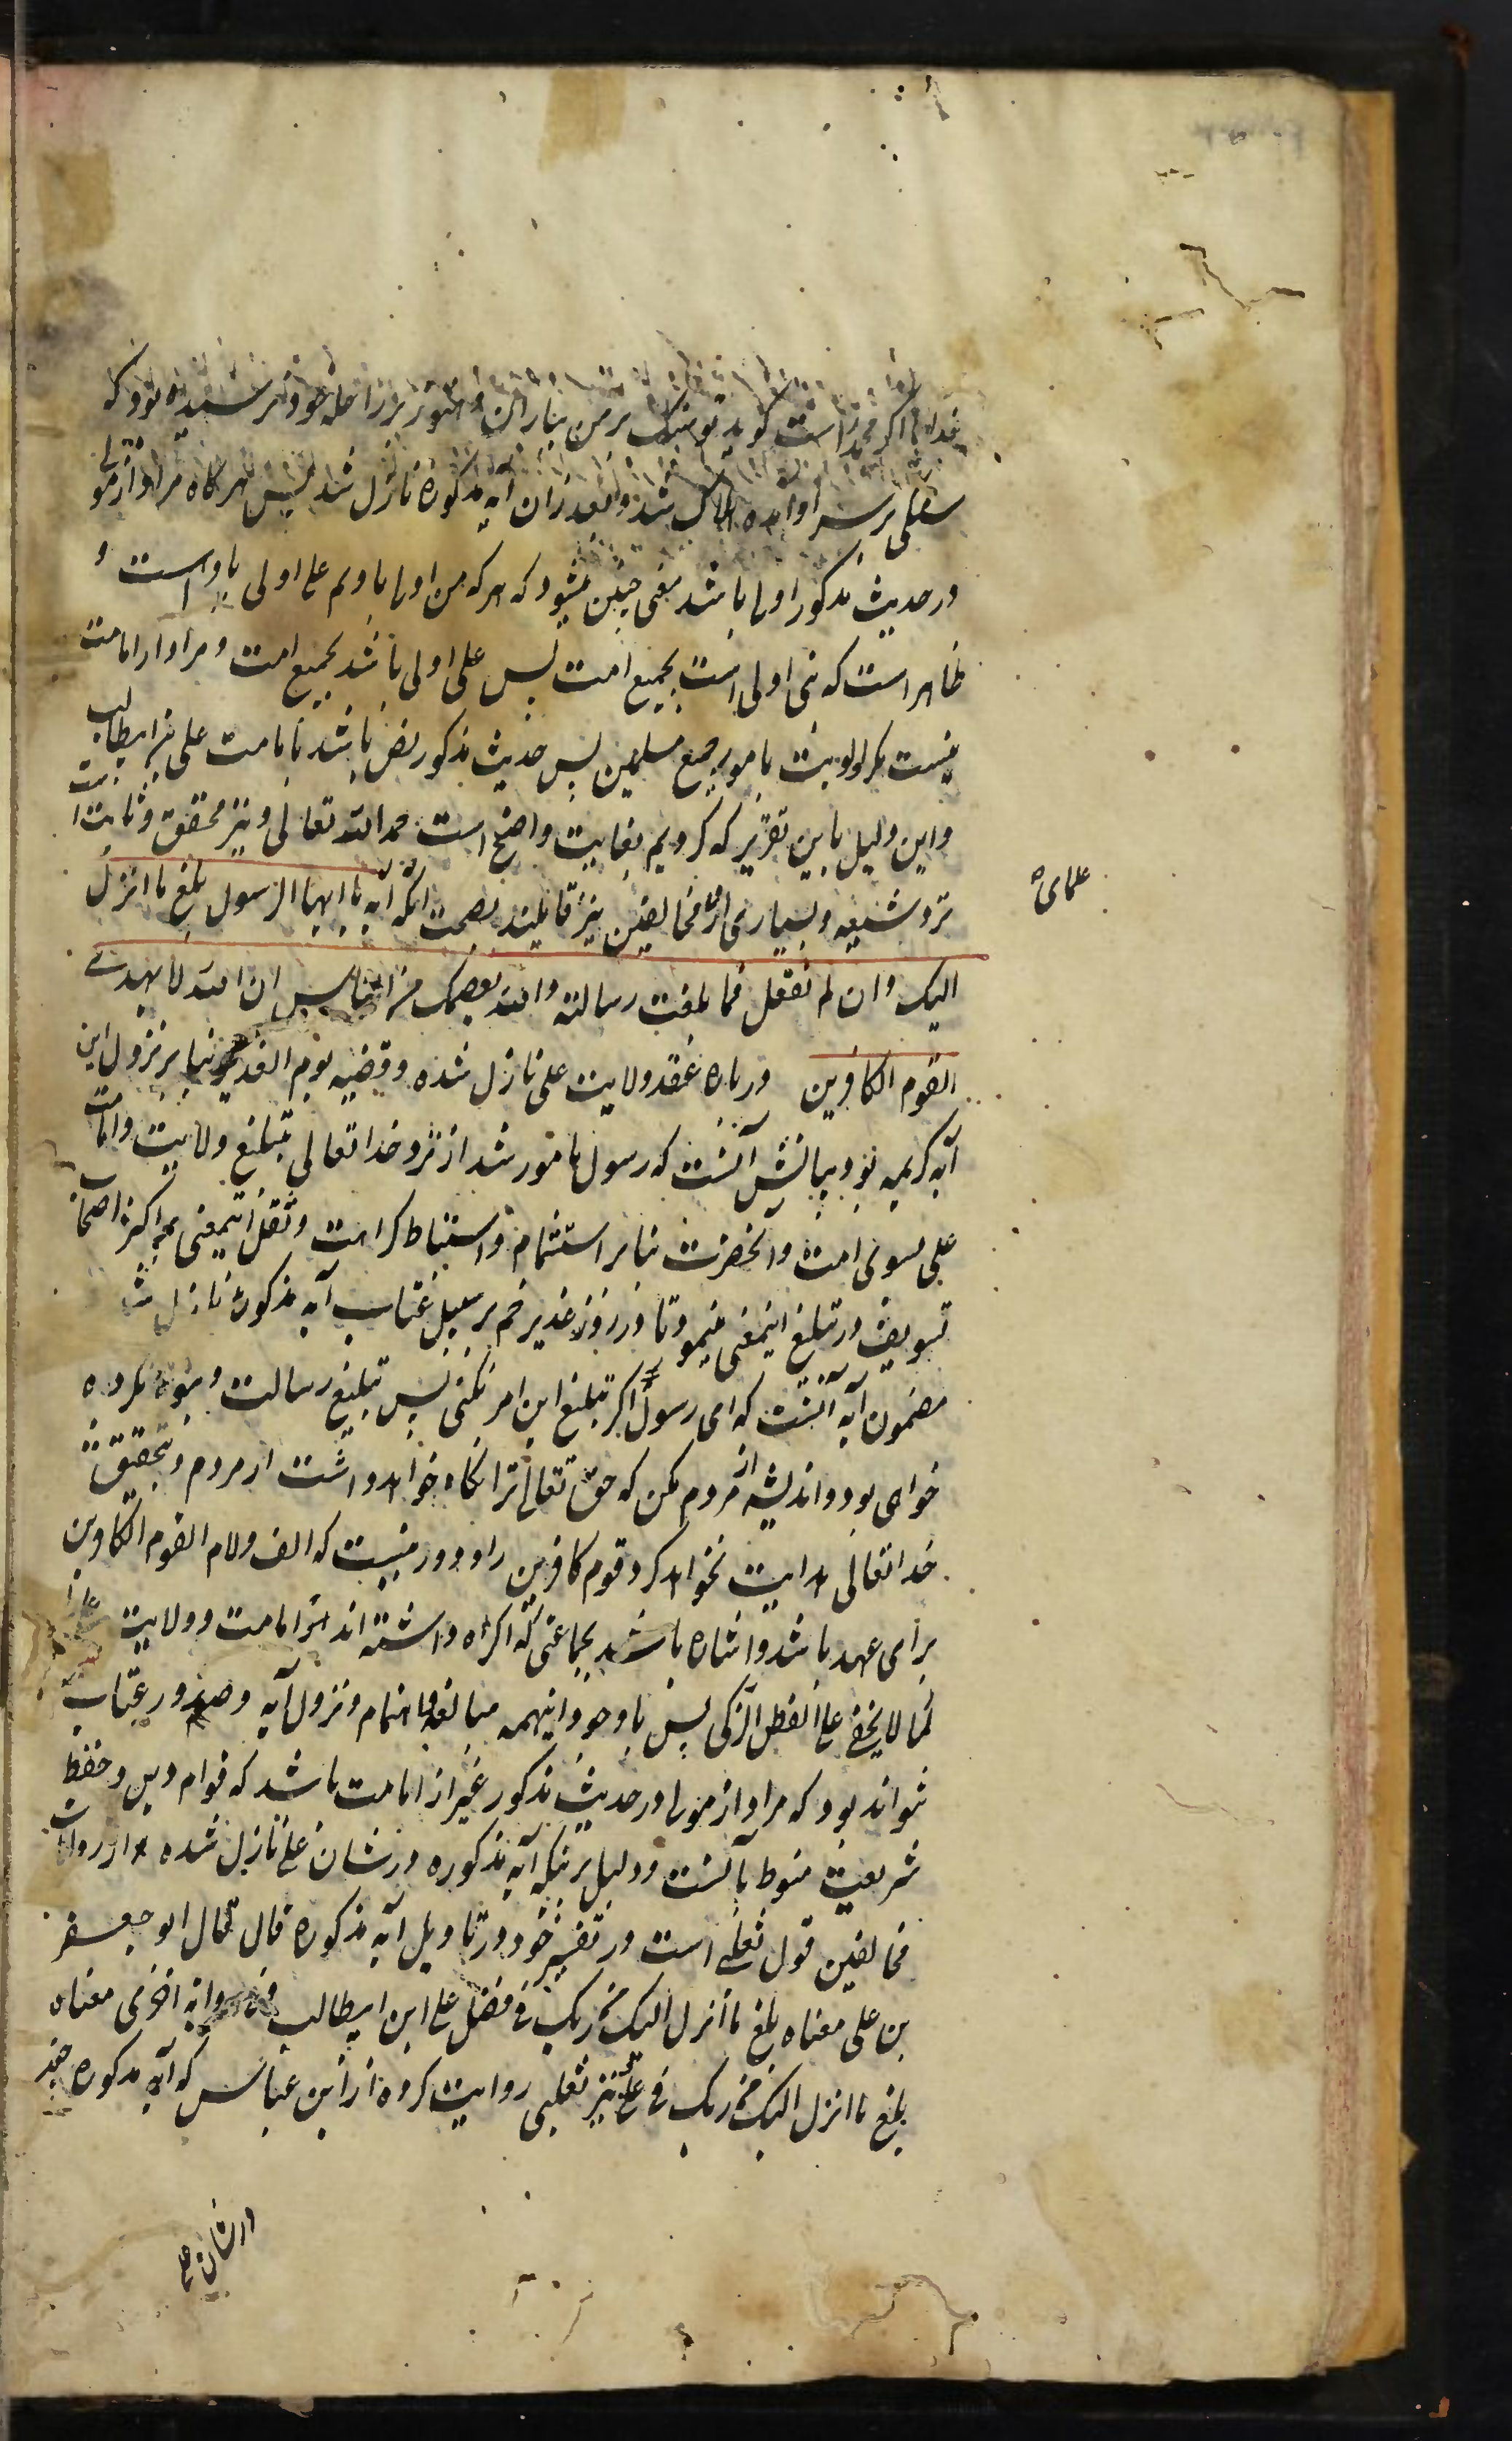 خدایا اگر محمد راست گوید تو سنگ بر من بباران و هنوز بر راحله خود نرسیده بود که
سنگی بر سر او آمده هلاک شد و بعد از آن آیه مذکوره نازل شد پس هرگاه مراد از مولی
در حدیث مذکور اولی باشد معنی چنین میشود که هر که من اولی باویم علی اولی باو است و
ظاهر است که نبی اولی است بجمیع امت پس علی اولی باشد بجمیع امت و مراد از امامت
نیست مگر اولویت بامور جمیع مسلمین پس حدیث مذکور نص باشد بامامت علی بن ابیطالب
و این دلیل باین تقریر که کردیم بغایت واضح است بحمد الله تعالی و نیز محقق و ثابت است
نزد شیعه و بسیاری از مخالفین نیز قایلند بصحت آنکه آیه یا ایها الرسول بلغ ما انزل
علمای
الیک و ان لم تفعل فما بلغت رسالته و الله یعصمک من الناس ان الله لا یهدی
القوم الکافرین درباره عقد ولایت علی نازل شده و قضیه یوم الغدیر بنابر نزول این
آیه کریمه بود بیانش آنست که رسول مامور شد از نزد خدا تعالی بتبلیغ ولایت و امامت
علی بسوی امت و آنحضرت بنابر استشمام و استنباط کراهت و ثقل اینمعنی بر اکثر اصحاب
تسویف در تبلیغ اینمعنی مینمود تا در روز غدیر خم بر سبیل عتاب آیه مذکوره نازل شد
مضمون آیه آنست که ای رسول اگر تبلیغ این امر نکنی پس تبلیغ رسالت و نبوة نکرده
خواهی بود و اندیشه از مردم مکن که حق تعالی ترا نگاه خواهد داشت از مردم و بتحقیق که
خدا تعالی هدایت نخواهد کرد قوم کافرین را و دور نیست که الف و لام القوم الکافرین
برای عهد باشد و اشاره باشد بجماعتی که اکراه داشته اند از امامت و ولایت علی
کما لا یخفی علی الفطن الزکی پس با وجود اینهمه مبالغه و اهتمام و نزول آیه و صدور عتاب
نتواند بود که مراد از مولی در حدیث مذکور غیر از امامت باشد که قوام دین و حفظ
شریعت منوط بآنست و دلیل بر اینکه آیه مذکوره در شان علی نازل شده از روایات
مخالفین قول ثعلبی است در تفسیر خود در تاویل آیه مذکوره قال قال ابو جعفر
بن علی معناه بلغ ما انزل الیک من ربک فی فضل علی ابن ابیطالب و فی روایه اخری معناه
بلغ ما انزل الیک من ربک فی علی و نیز ثعلبی روایت کرده از ابن عباس که آیه مذکوره
در شان علی